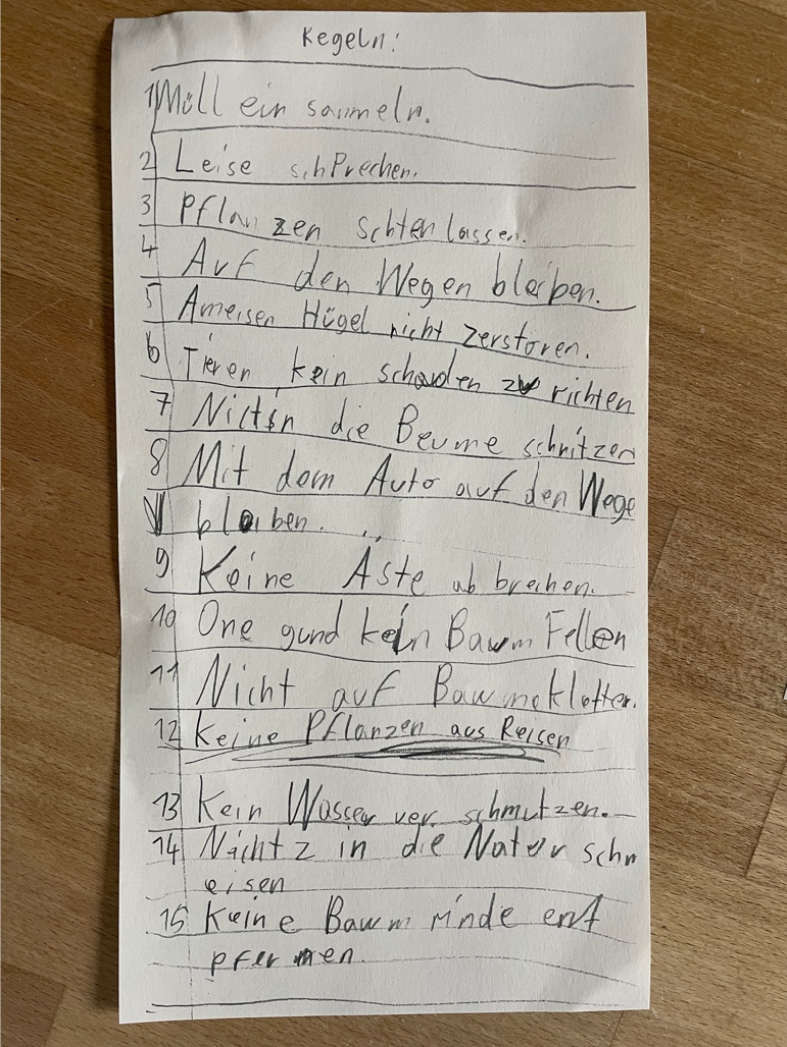 Regeln:
1 Müll ein sammeln.
2 Leise schPrechen.
3 Pflanzen schten lassen.
4 Auf den Wegen bleiben.
5 Ameisen Hügel nicht zerstören.
6 Tieren kein schaden zu richten
7 in die Beume schnitzen
8 Mit dem Auto auf den Wege
bleiben.
9 Keine Äste ab brechen.
10 One gund kein Baum Fellen
11 Nicht auf Baume kletter.
12 Keine Pflanzen aus Reisen
13 Kein Wasser ver schmutzen.
14 Nichtz in die Natur schm
eisen
15 Keine Baum rinde ent
pfermen.